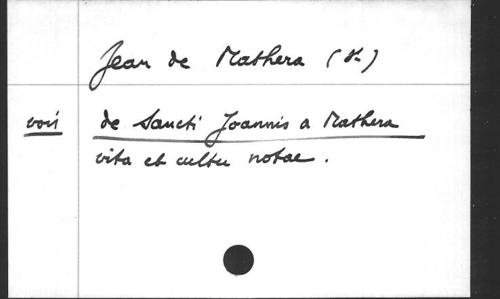 Jean de Mathera (St)
voir de Sancti Joannis a Mathera
vita et cultu notae.